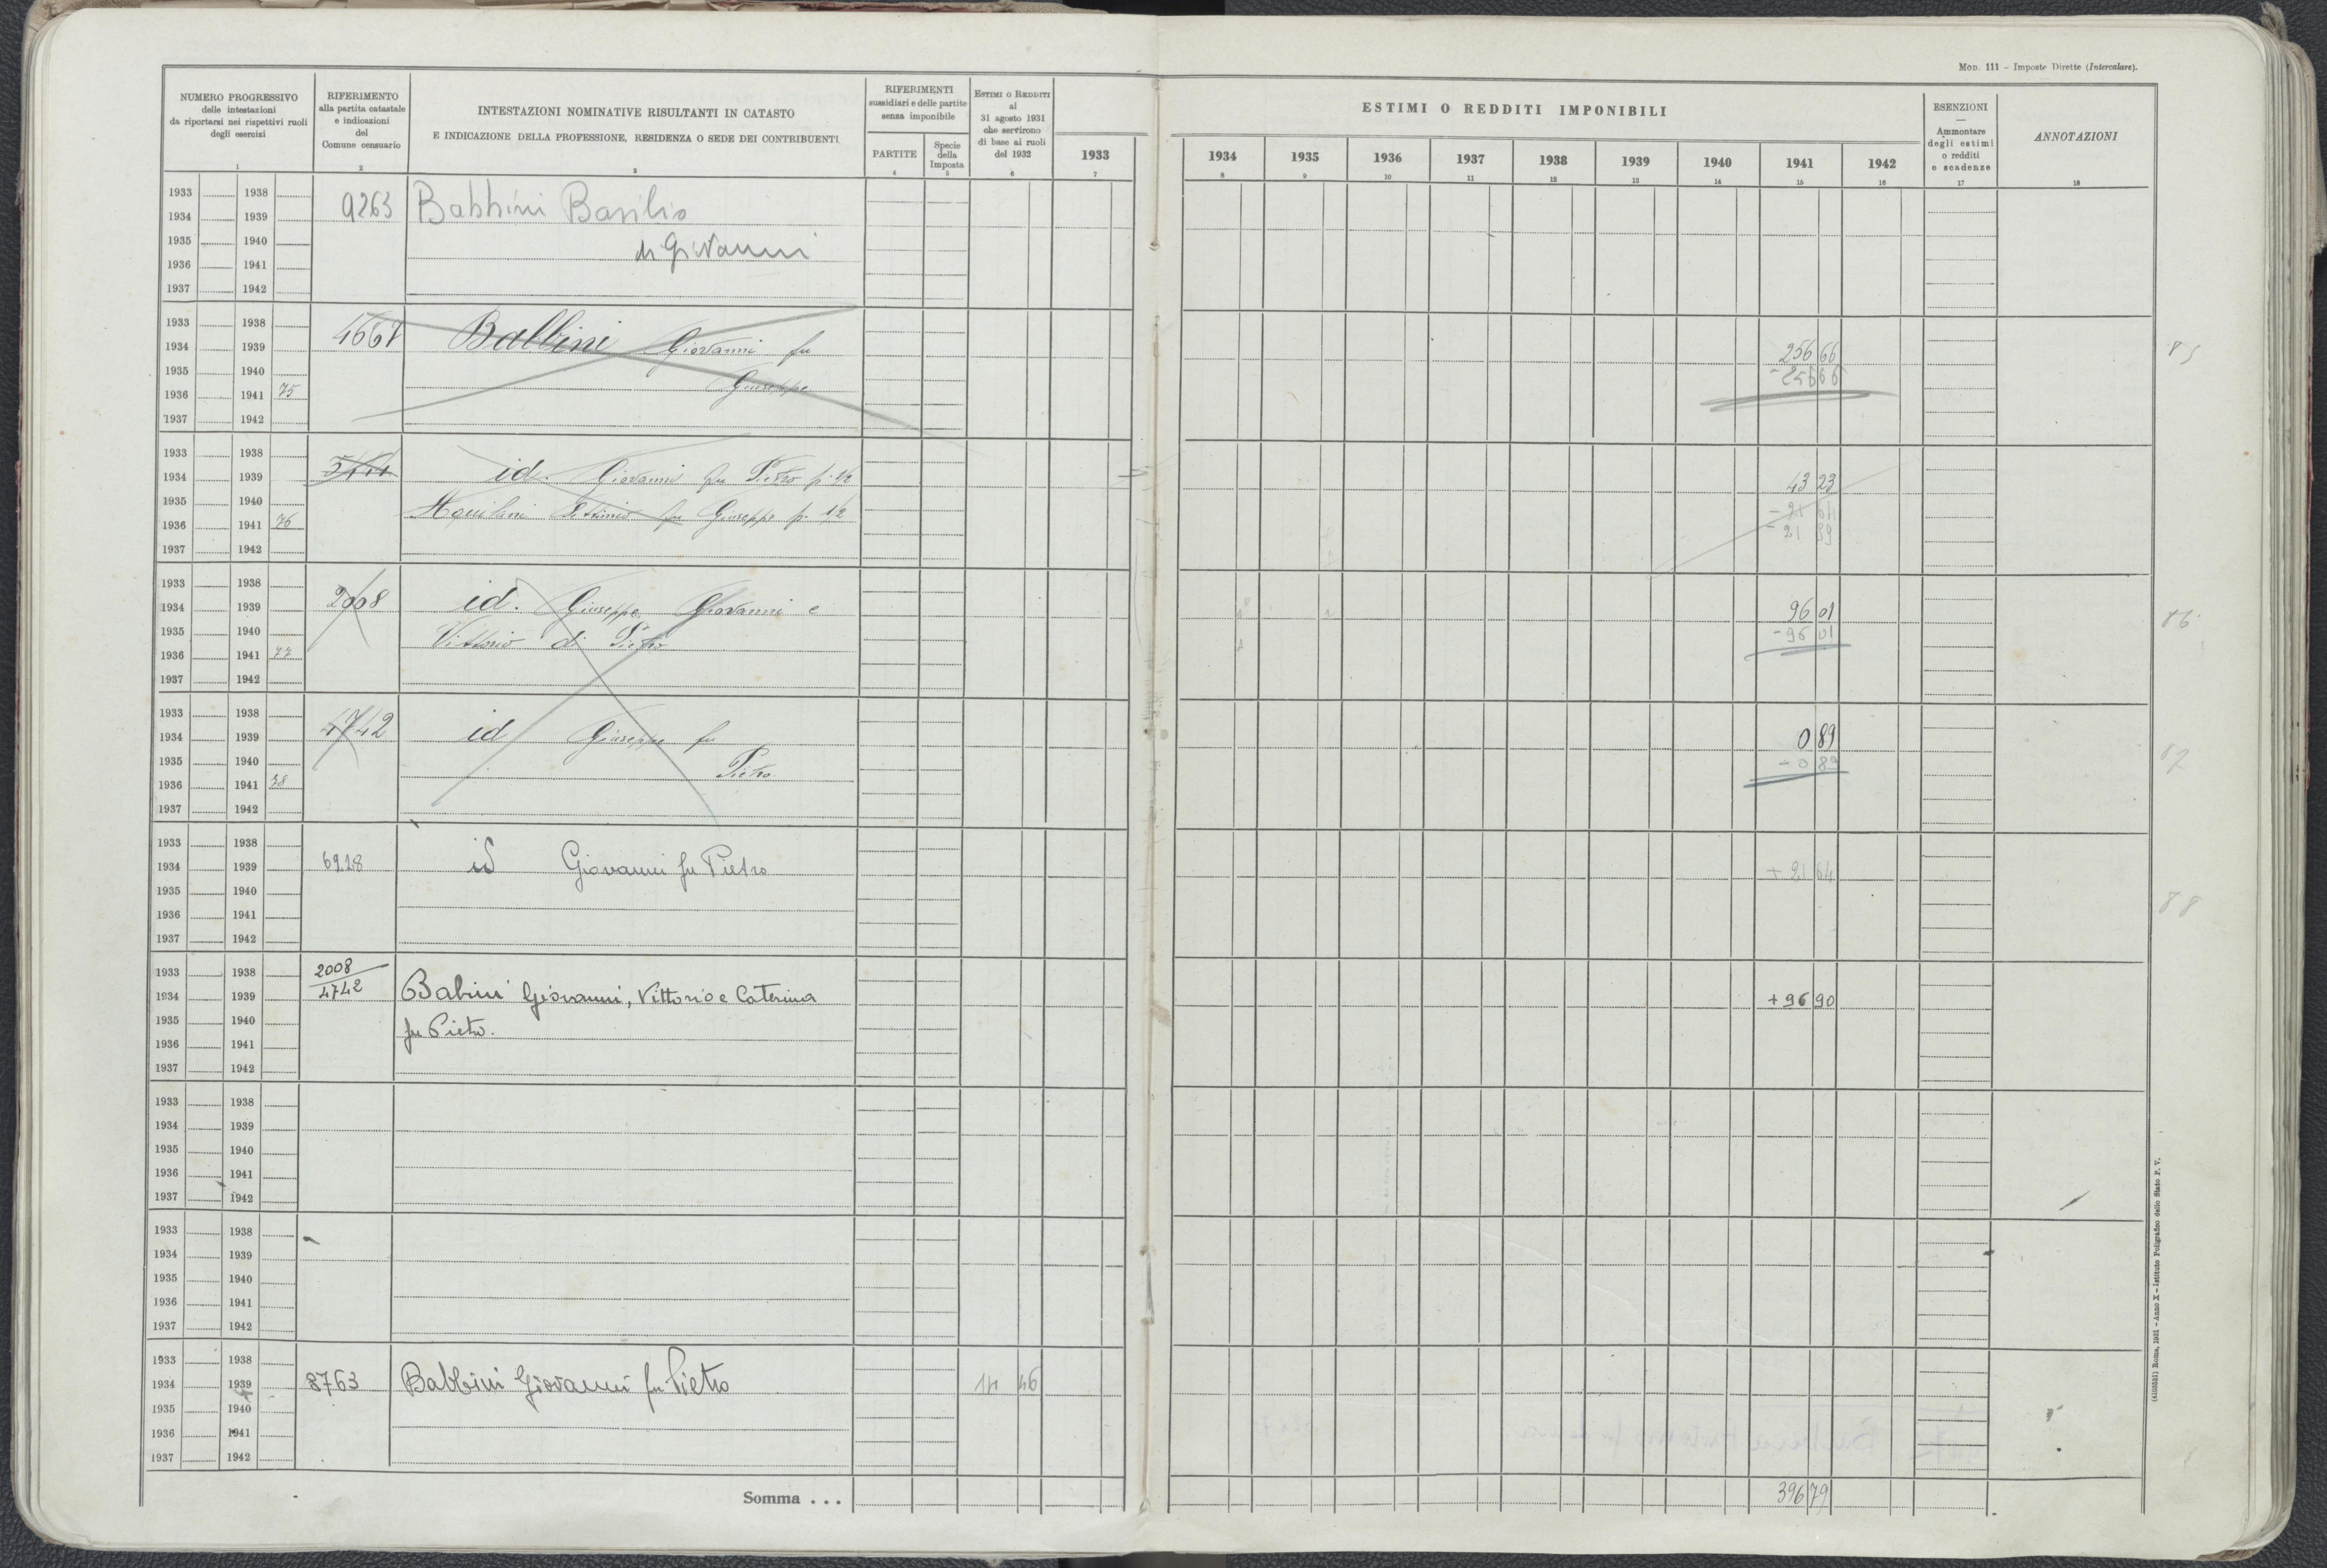 MOD. 111 – Imposte Dirette (Intercalare).
NUMERO PROGRESSIVO
delle intestazioni
da riportarsi nei rispettivi ruoli
degli esercizi
1
RIFERIMENTO
alla partita catastale
e indicazioni
del
Comune censuario
2
INTESTAZIONI NOMINATIVE RISULTANTI IN CATASTO
E INDICAZIONE DELLA PROFESSIONE, RESIDENZA O SEDE DEI CONTRIBUENTI
3
RIFERIMENTI
sussidiari e delle partite
senza imponibile
PARTITE
4
Specie
della
Imposta
5
ESTIMI O REDDITI
al
31 agosto 1931
che servirono
di base ai ruoli
del 1932
6
ESTIMI O REDDITI IMPONIBILI
1933 1934 1935 1936 1937 1938 1939 1940 1941 1942
7 8 9 10 11 12 13 14 15 16
ESENZIONI
—
Ammontare
degli estimi
o redditi
e scadenze
17
ANNOTAZIONI
18
1933 1938
1934 1939 9263 Babbini Basilio
1935 1940 di Giovanni
1936 1941
1937 1942
1933 1938
1934 1939 Babbini Giovanni fu 256 66
1935 1940 Giuseppe - 256 66
1936 1941 75
1937 1942
1933 1938
1934 1939 id. Giovanni fu Pietro p. 1/2 43 23
1935 1940 fu Giuseppe p. 1/2
1936 1941 76 - 21
1937 1942
1933 1938
1934 1939 2008 id. Giuseppe, Giovanni e 96 01 86
1935 1940 Vittorio di Pietro - 96 01
1936 1941 77
1937 1942
1933 1938
1934 1939 4742 id Giuseppe fu 0 89
1935 1940 Pietro - 0 89 87
1936 1941 78
1937 1942
1933 1938
1934 1939 6928 id Giovanni fu Pietro + 21 64
1935 1940 88
1936 1941
1937 1942
1933 1938 2008
1934 1939 4742 Babini Giovanni, Vittorio e Caterina + 96 90
1935 1940 fu Pietro.
1936 1941
1937 1942
1933 1938
1934 1939
1935 1940
1936 1941
1937 1942
1933 1938
1934 1939
1935 1940
1936 1941
1937 1942
1933 1938
1934 1939 8763 Babbini Giovanni fu Pietro 46
1935 1940
1936 1941
1937 1942
Somma . . . 396 79
(4103531) Roma, 1931 – Anno X – Istituto Poligrafico dello Stato P. V.